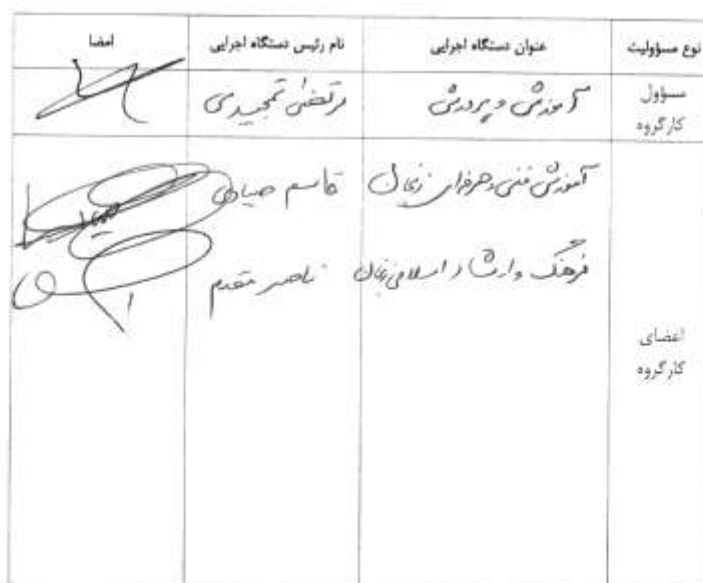 نوع مسؤولیت	عنوان دستگاه اجرایی	نام رئیس دستگاه اجرایی	امضا
مسؤول کارگروه	آموزش و پرورش	مرتضی تمجیدی
آموزش فنی و حرفه‌ای زنجان	قاسم صیادی
فرهنگ و ارشاد اسلامی زنجان	ناصر مقدم
اعضای
کارگروه